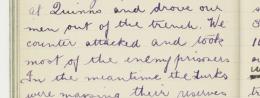 at Quinns and drove our
men out of the trench. We
counter attacked and took
most of the enemy prisoners
In the meantime the Turks
were massing their reserves